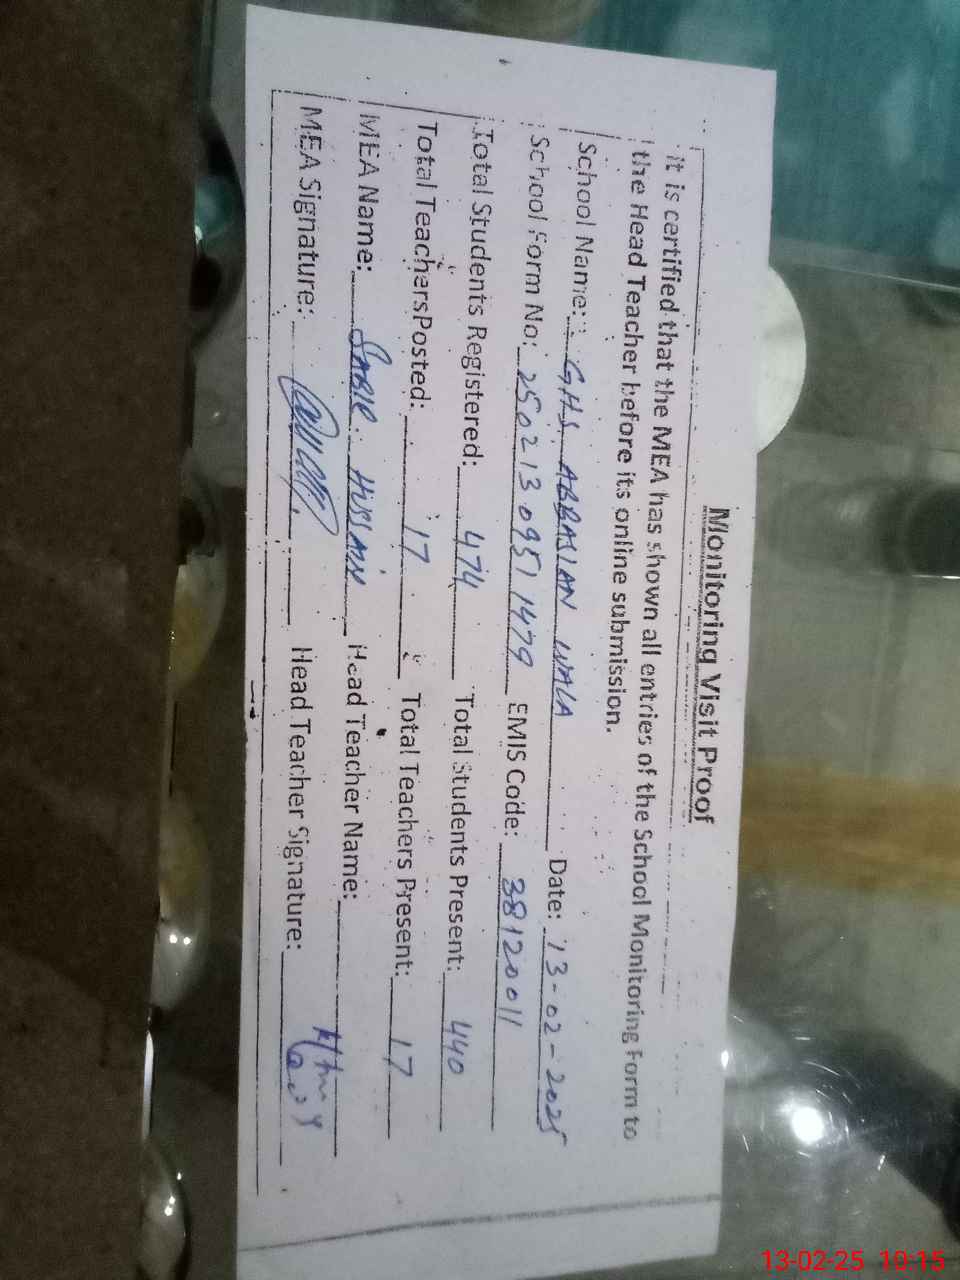 Monitoring Visit Proof
it is certified that the MEA has shown all entries of the School Monitoring Form to
the Head Teacher before its online submission.
School Name: GHS ABBASIAN WALA Date: 13-02-2025
School Form No: 250213 0951 1479 EMIS Code: 38120011
Total Students Registered: 474 Total Students Present: 440
Total Teachers Posted: 17 Total Teachers Present: 17
MEA Name: SABIR HUSSAIN Head Teacher Name:
MEA Signature: Head Teacher Signature:
13-02-25 10:15